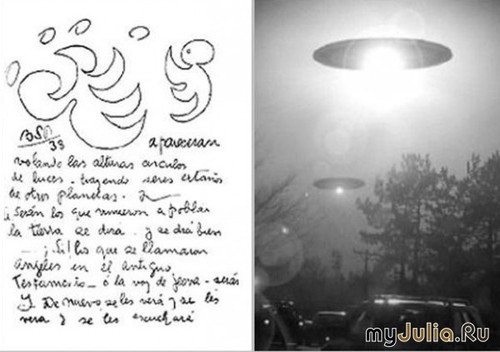 BSP
38
aparecerán
volando las alturas circulos
de luces - trayendo seres extraños
de otros planetas.
Serán los que vinieron a poblar
la tierra se dirá. y se dirá bien
¡Si! los que se llamaron
angeles en el antiguo
Testamento - ó la voz de Jeova - serán
De nuevo se les verá y se les
vera y se les escuchará
myJulia.Ru